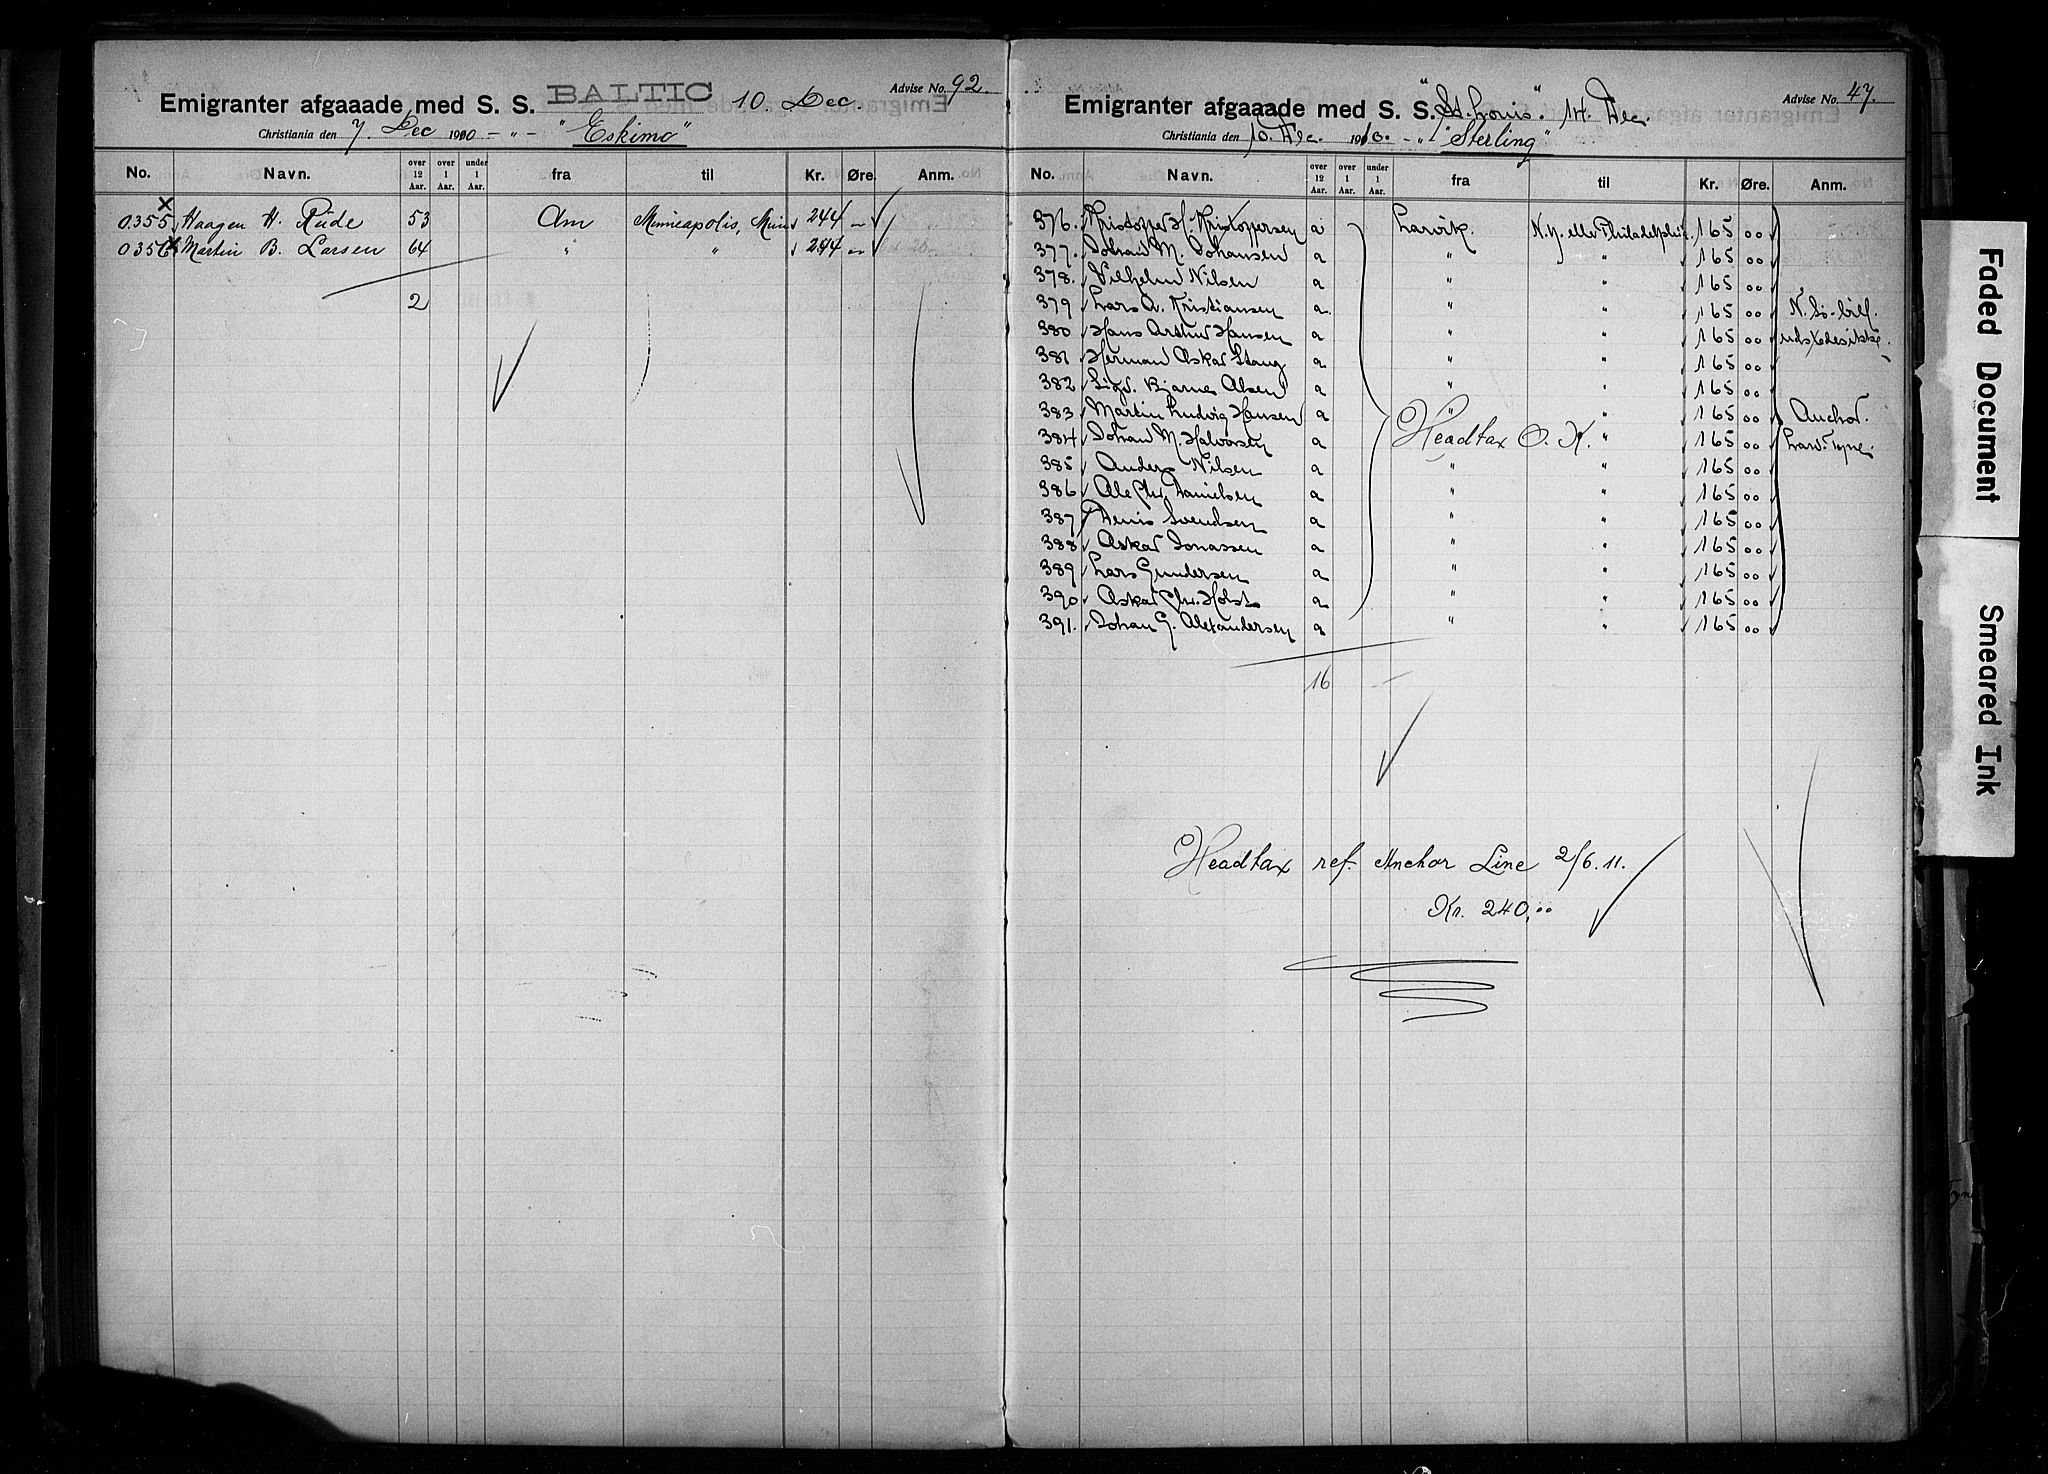 Advise No. 92.
Emigranter afgaaade med S. S. BALTIC 10. Dec.
Christiania den 7. Dec 1910 - " - "Eskimo"
No. Navn. over 12 Aar. over 1 Aar. under 1 Aar. fra til Kr. Øre. Anm.
0355 Haagen H. Rüde 53 Am Minneapolis, Min 244 "
0356 Martin B. Larsen 64 " " 244 "
2
Advise No. 47.
Emigranter afgaaade med S. S. "St. Louis". 14. Dec.
Christiania den 10. Dec. 1910. - " "Sterling"
No. Navn. over 12 Aar. over 1 Aar. under 1 Aar. fra til Kr. Øre. Anm.
376. Kristoffer H. Kristoffersen a Larvik. N.Y. eller Philadelphia. 165 00
377. Johan M. Johansen a " " 165 00
378. Vilhelm Nilsen a " " 165 00
379 Lars A. Kristiansen a " " 165 00
380 Hans Arthur Hansen a " " 165 00
381 Herman Askar Stang a " " 165 00
382 Sigv. Bjarne Olsen a " " 165 00
383 Martin Ludvig Hansen a " " 165 00 Anchor.
384 Johan M. Halvorsen a Headtax O. K. " 165 00 Larv. Tyne.
385 Anders Nilsen a " " 165 00
386 Ole Chr. Danielsen a " " 165 00
387 Denis Svendsen a " " 165 00
388 Askar Jonassen a " " 165 00
389 Lars Gundersen a " " 165 00
390 Askar Chr. Holst a " " 165 00
391. Johan G. Alexandersen a " " 165 00
16
Headtax ref. Anchor Line 2/6. 11.
Kr. 240,00
Faded Document
Smeared Ink